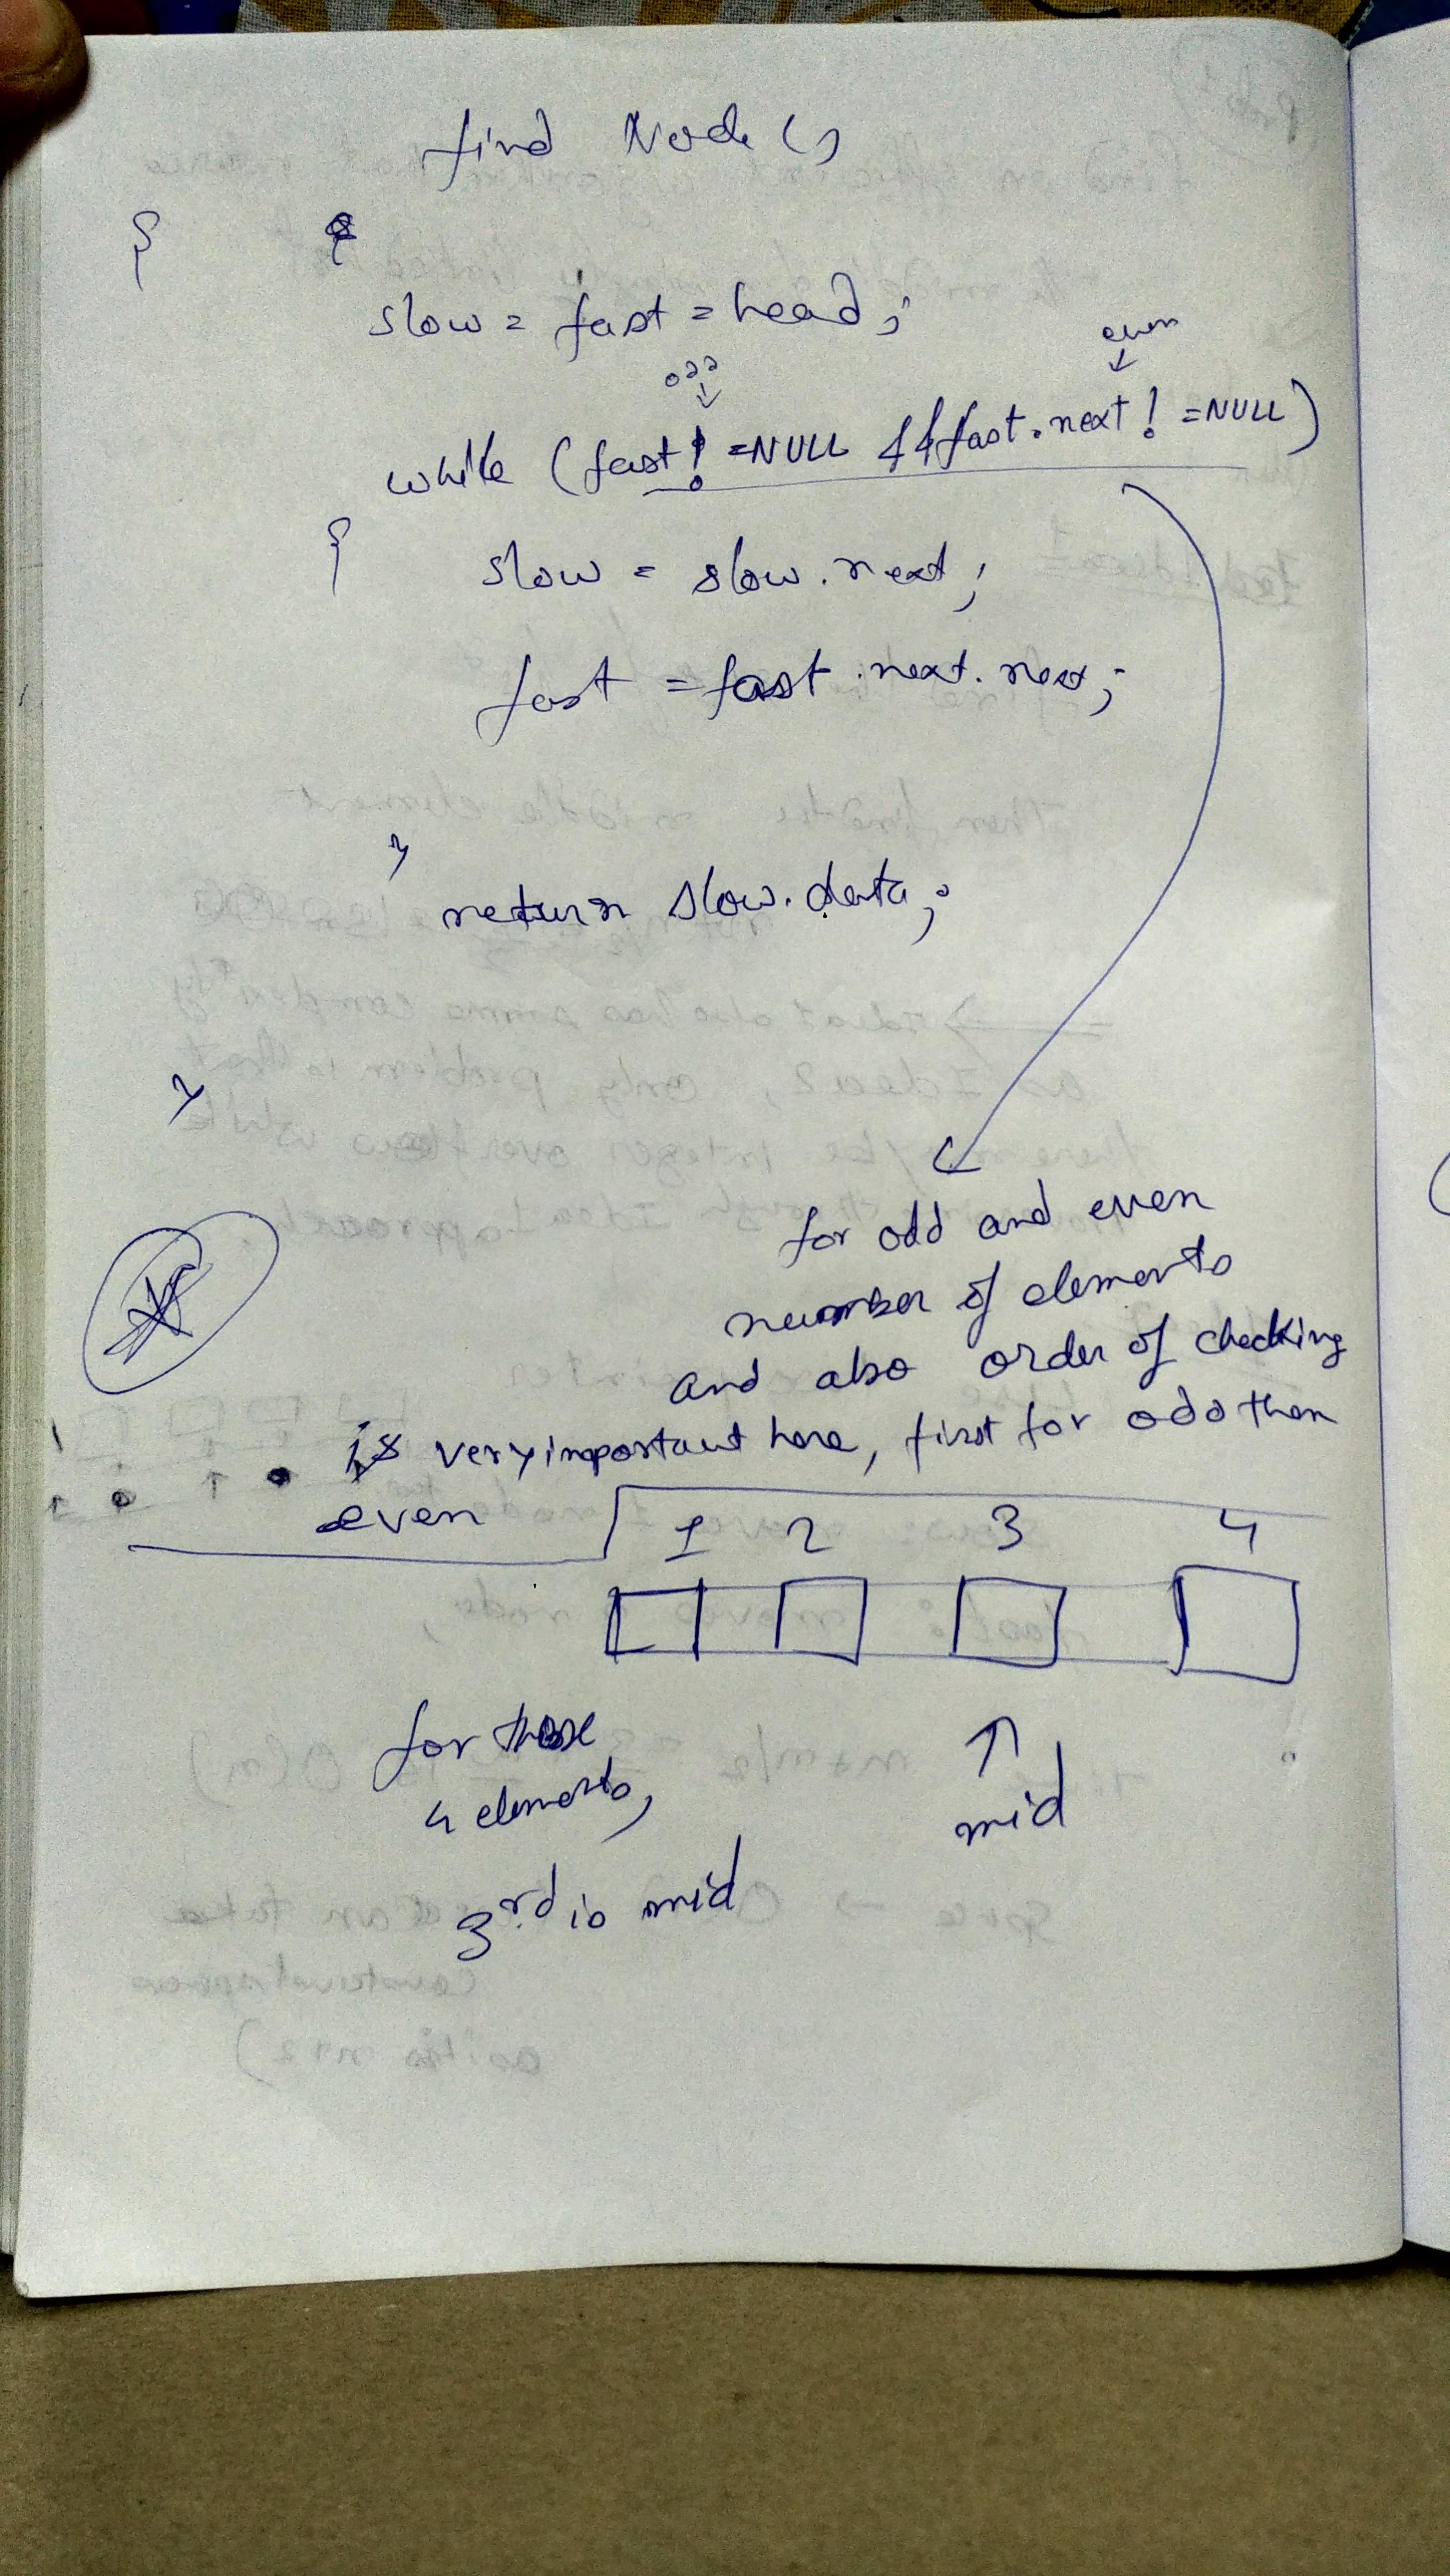 find Node()
{
slow = fast = head;
odd
even
while (fast != NULL && fast.next != NULL)
{
slow = slow.next;
fast = fast.next.next;
}
return slow.data;
}
for odd and even
number of elements
and also order of checking
is very important here, first for odd then
even
1 2 3 4
for these
4 elements,
mid
3rd is mid